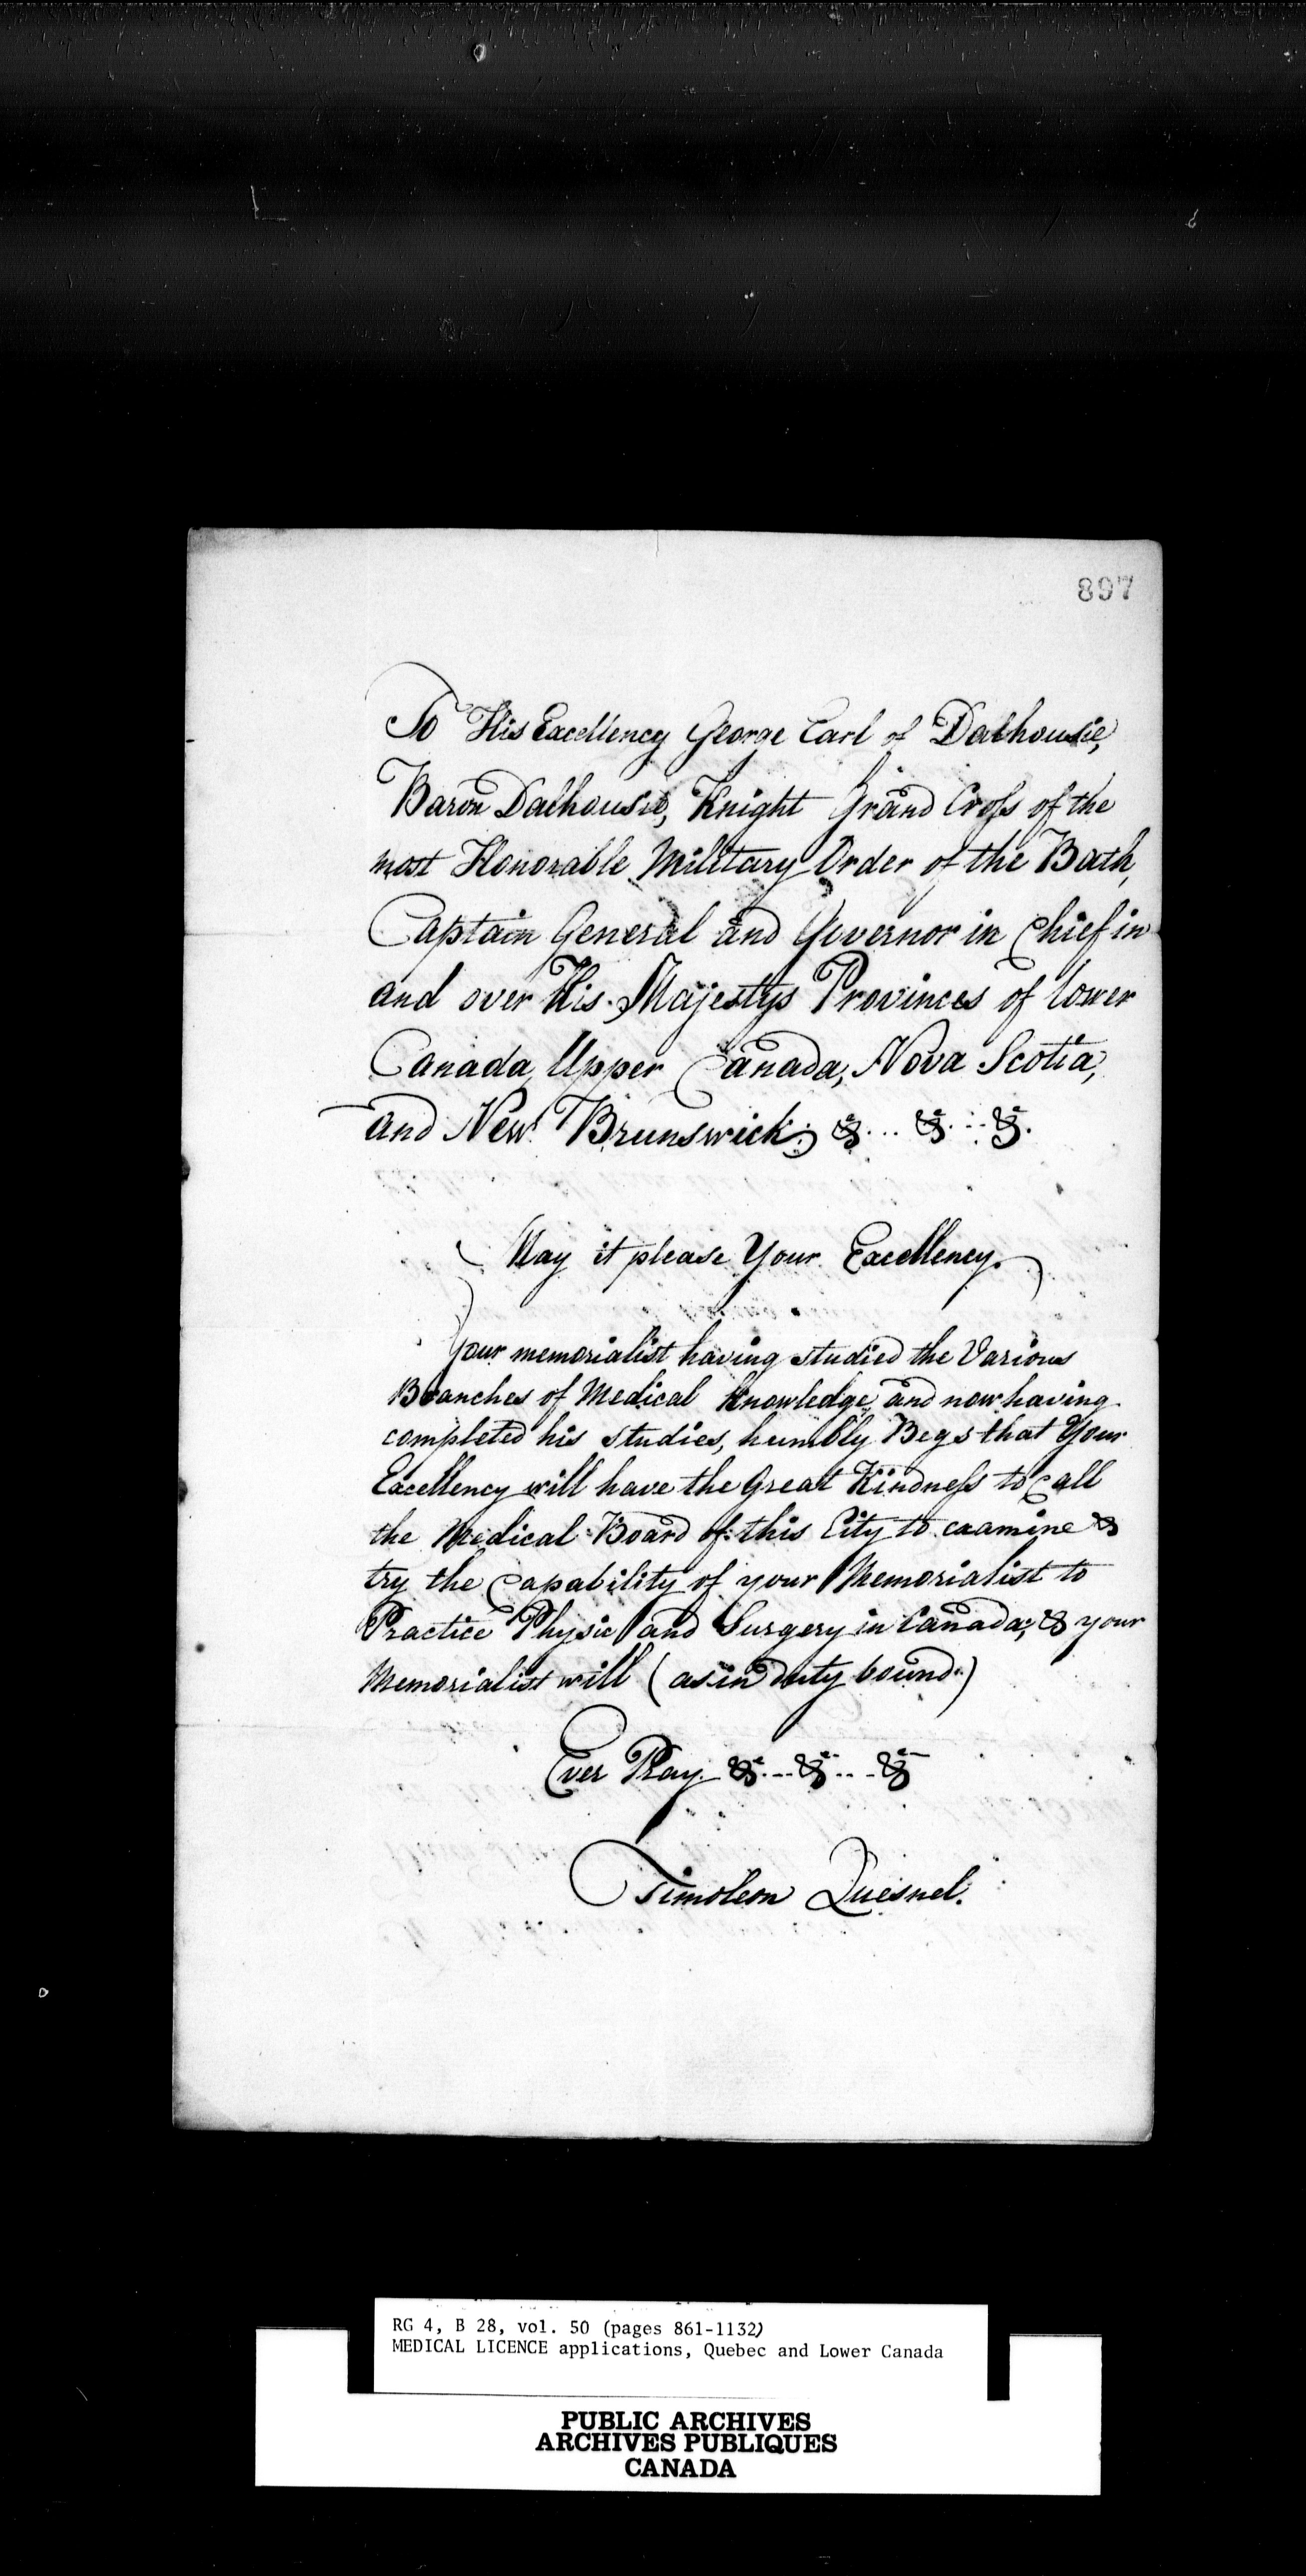 897
To His Excellency George Earl of Dalhousie,
Baron Dalhousie, Knight Grand Cross of the
most Honorable Military Order of the Bath,
Captain General and Governor in Chief in
and over His Majestys Provinces of lower
Canada, Upper Canada, Nova Scotia,
and New Brunswick; &c... &c... &c.
May it please Your Excellency.
Your memorialist having studied the Various
Branches of Medical Knowledge and now having
completed his studies, humbly Begs that Your
Excellency will have the Great Kindness to Call
the Medical Board of this City to examine &
try the Capability of your Memorialist to
Practice Physic and Surgery in Canada; & your
Memorialist will (as in duty bound.)
Ever Pray &c... &c... &c
Timoleon Quesnel.
RG 4, B 28, vol. 50 (pages 861-1132)
MEDICAL LICENCE applications, Quebec and Lower Canada
PUBLIC ARCHIVES
ARCHIVES PUBLIQUES
CANADA